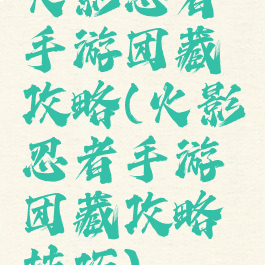 火影忍者
手游团藏
攻略(火影
忍者手游
团藏攻略
技巧)